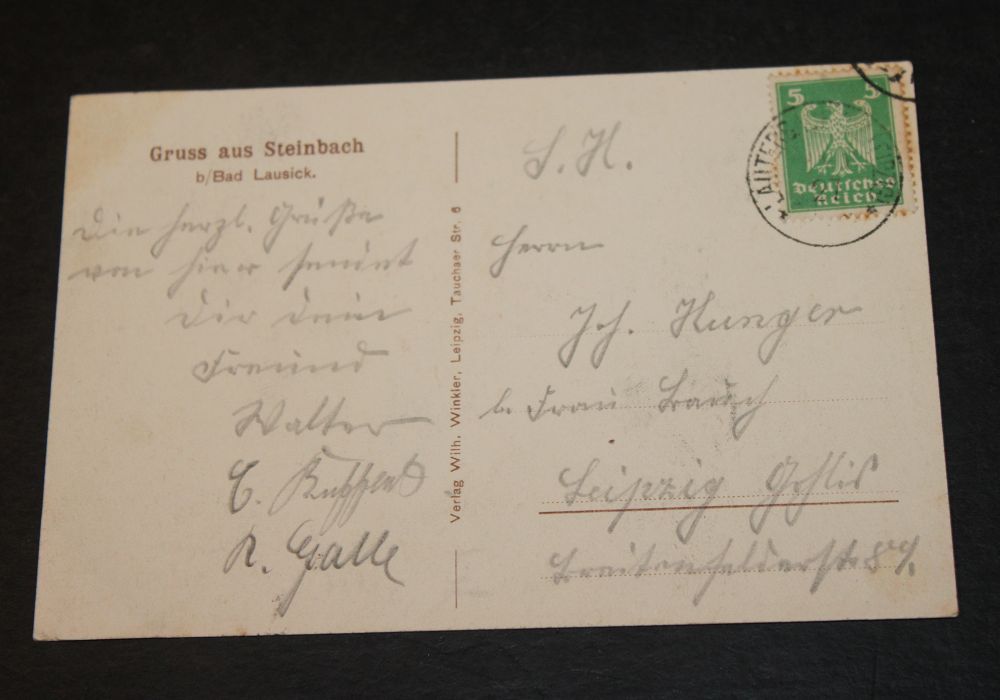 Gruss aus Steinbach
b/Bad Lausick.
Die herzl. Grüße
von hier sendet
Dir dein
Freund
Walter
E.
R. Galle
Verlag Wilh. Winkler, Leipzig, Tauchaer Str. 6
S. H.
Herrn
Joh. Hunger
b. Frau Bauch
Leipzig Gohlis
Breitenfelderstr. 89.
5 5
Deutsches
Reich
LAUTERB